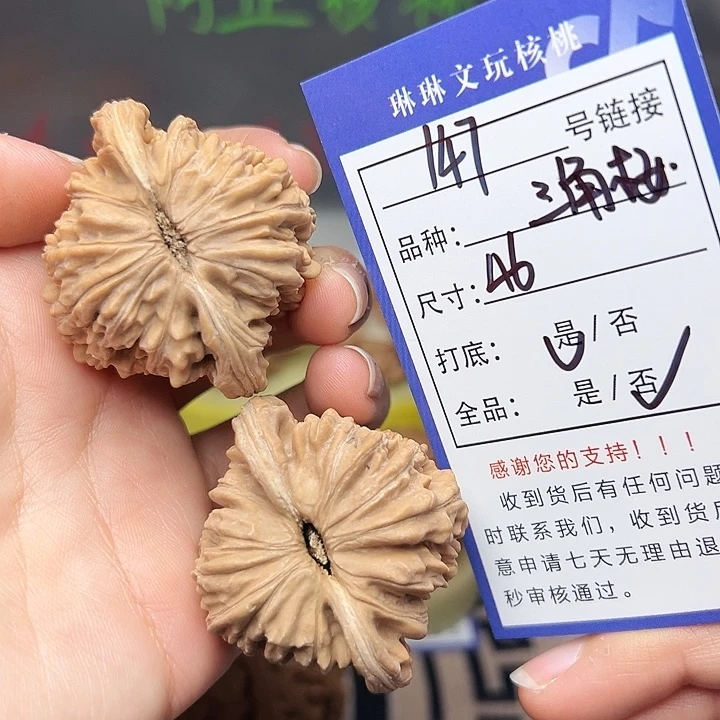 琳琳文玩核桃
147 号链接
品种：三角梅
尺寸：46
打底： 是 / 否
全品： 是 / 否
感谢您的支持！！！
收到货后有任何问题
时联系我们，收到货后
意申请七天无理由退
秒审核通过。